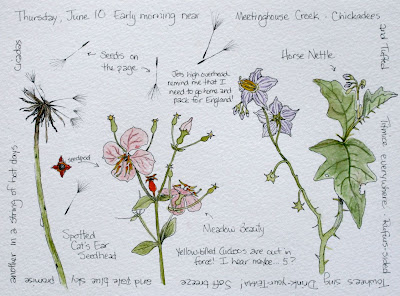 Thursday, June 10 Early morning near Meetinghouse Creek - Chickadees
and Tufted Titmice everywhere. Rufous-sided
Towhees sing Soft breeze and pale blue sky promise
another in a string of hot days Cicadas
Seeds on
the page
Jets high overhead
remind me that I
need to go home and
pack for England!
Horse Nettle
seedpod
Spotted
Cat's Ear
Seedhead
Meadow Beauty
Yellow-billed Cuckoos are out in
force! I hear maybe... 5?